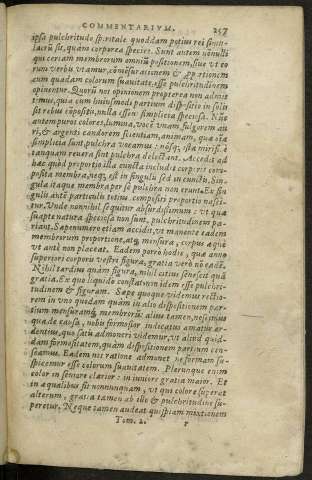 COMMENTARIVM. 257
ipsa pulchritudo sp.ritale quoddam potius rei simu-
lacrũ sit, quàm corporea species. Sunt autem nõnulli
qui certam membrorum omniũ positionem, siue vt eo
rum verbis vtamur, cõmẽsurationem & ꝓportionem
cum quadam colorum suauitate, esse pulchritudinem
opinentur. Quorũ nos opinionem propterea non admit
timus, quia cum huiusmodi partium dispositio in solis
sit rebus cõpositis, nulla essent simplicia speciosa. Nũc
autem puros colores, lumina, vocẽ vnam, fulgorem au
ri, & argenti candorem, scientiam, animam, quæ oĩa
simplicia sunt pulchra vocamus: nosq́; ista mirificè
tanquam reuera sint pulchra delectant. Accedit ad
hæc quòd proportio illa cuncta includit corporis com-
posita membra, neq́; est in singulis sed in cunctis. Sin-
gula itaque membra per se pulchra non erunt. Ex sin
gulis autẽ particulis totius compositi proportio nasci-
tur. Vnde nonnihil sequitur absurdissimum: vt quæ
suapte natura speciosa non sunt, pulchritudinem pa-
riant. Sæpenumero etiam accidit, vt manente eadem
membrorum proportione, atq́; mensura, corpus æquè
vt antè non placeat. Eadem porrò hodie, quæ anno
superiori corporis vestri figura, gratia verò nõ eadẽ.
Nihil tardius quàm figura, nihil citius senescit quã
gratia. Ex quo liquidò constat non idem esse pulchri-
tudinem & figuram. Sæpe quoque videmus rectio-
rem in vno quodam quàm in alio dispositionem par-
tium mensuramq́; membrorũ: alius tamen, nescimus
qua de causa, nobis formosior indicatur amaturq́; ar-
dentius, quo satis admoneri videmur, vt aliud quid-
dam formositatem, quàm dispositionem partium cen-
seamus. Eadem nos ratione admonet ne formam su-
spicemur esse colorum suauitatem. Plerunque enim
color in seniore clarior: in iuniore gratia maior. Et
in æqualibus fit nonnunquam, vt qui colore superat
alterum, gratia tamen ab illo & pulchritudine su-
peretur. Neque tamen audeat quispiam mixtionem
Tom. 2. r